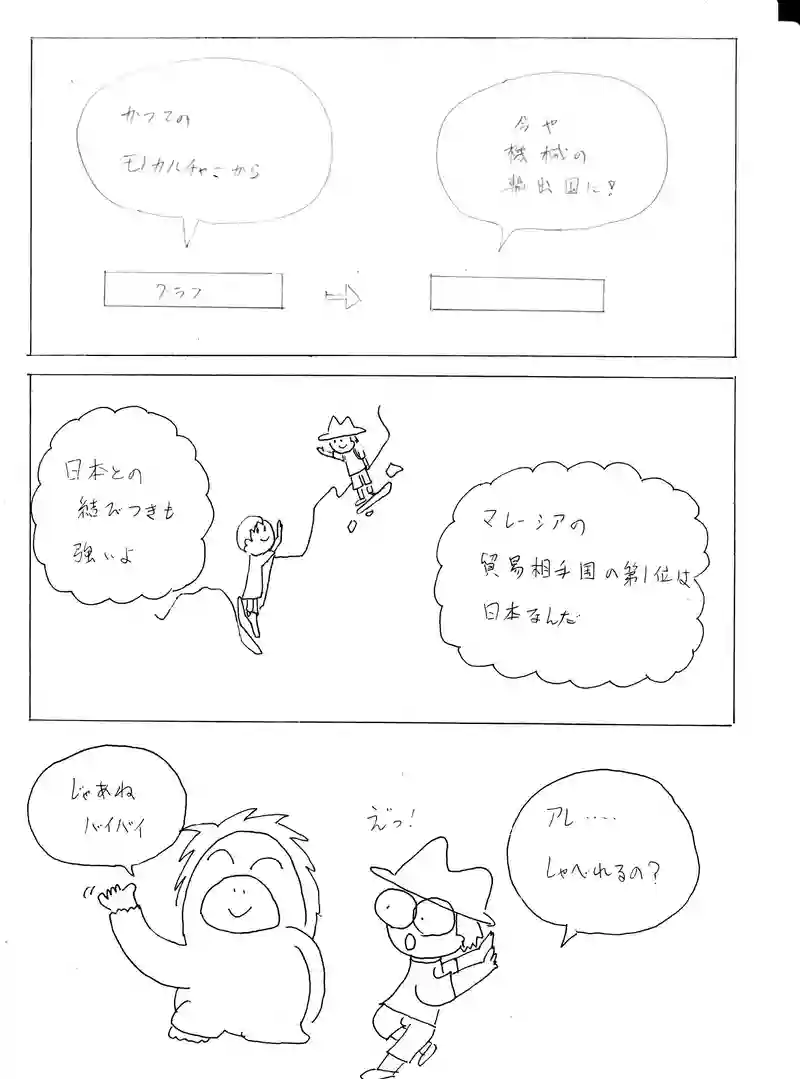 かつての
モノカルチャーから
今や
機械の
輸出国に!
グラフ
日本との
結びつきも
強いよ
マレーシアの
貿易相手国の第1位は
日本なんだ
じゃあね
バイバイ
えっ!
アレ‥‥
しゃべれるの?